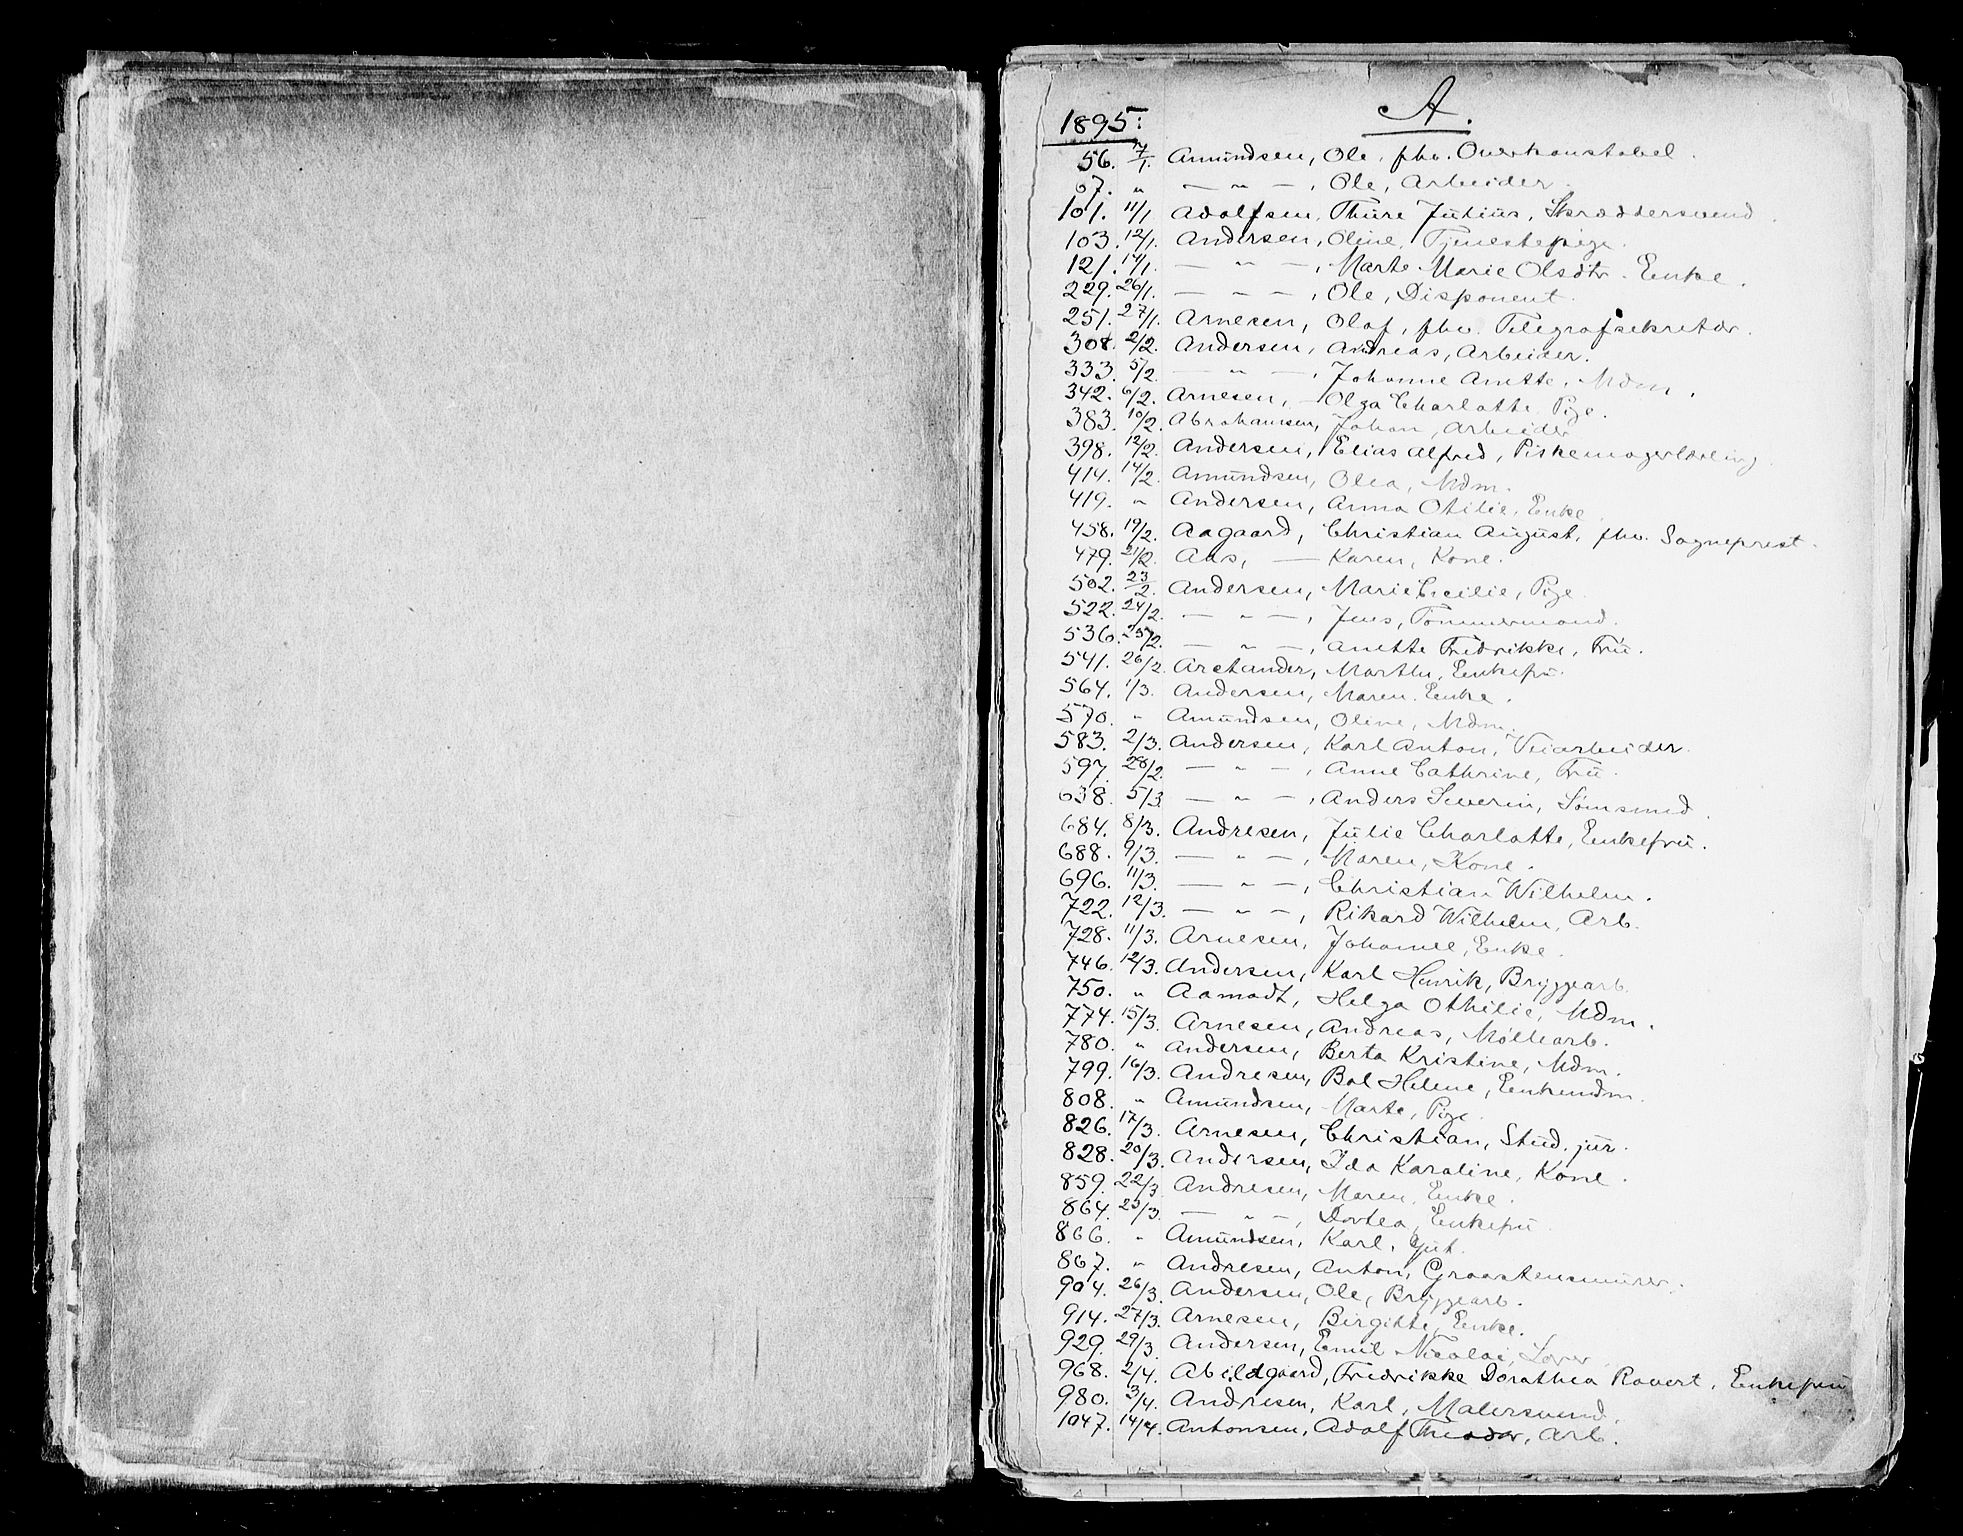 A.
1895:
56. 7/1. Amundsen, Ole, fhv. Overkonstabel.
67. " — " — , Ole, Arbeider.
101. 11/1 Adolfsen, Thure Julius, Skræddersvend.
103. 12/1. Andersen, Oline, Tjenestepige.
121. 14/1. — " — , Marte Marie Olsdtr. Enke.
229. 26/1. — " — , Ole, Disponent.
251. 27/1. Arnesen, Olaf, fhv. Telegrafsekretær.
308. 2/2. Andersen, Andreas, Arbeider.
333. 5/2. — " — , Johanne Anette, Mdm.
342. 6/2. Arnesen, — Olga Charlotte, Pige.
383. 10/2. Abrahamsen, Johan, Arbeider
398. 12/2. Andersen, Elias Alfred, Piskemagerlærling.
414. 14/2. Amundsen, Olea, Mdm.
419. " Andersen, Anna Otilie, Enke.
458. 19/2. Aagaard, Christian August, fhv. Sogneprest.
479. 21/2. Aas, — Karen, Kone.
502. 23/2. Andersen, Marie Cecilie, Pige.
522. 24/2. — " — , Jens, Tømmermand.
536. 25/2. — " — , Anette Fredrikke, Fru.
541. 26/2. Arctander, Marthe, Enkefru.
564. 1/3. Andersen, Maren. Enke.
570. " Amundsen, Oline, Mdm.
583. 2/3. Andersen, Karl Anton, Veiarbeider.
597. 28/2. — " — , Anne Cathrine, Fru.
638. 5/3 — " — , Anders Severin, Sømsmed.
684. 8/3. Andresen, Julie Charlotte, Enkefru.
688. 9/3. — " — , Maren, Kone.
696. 11/3. — " — , Christian Wilhelm.
722. 12/3. — " — , Rikard Wilhelm, Arb.
728. 11/3. Arnesen, Johanne, Enke.
746. 12/3. Andersen, Karl Henrik, Bryggearb.
750. " Aamodt, Helga Othilie, Mdm.
774. 15/3. Arnesen, Andreas, Møllearb.
780. " Andersen, Berta Kristine, Mdm.
799. 16/3. Andresen, Bol Helene, Enkemdm.
808. " Amundsen, Marte, Pige.
826. 17/3. Arnesen, Christian, Stud. jur.
828. 20/3. Andersen, Ida Karoline, Kone.
859. 22/3 Andresen, Maren, Enke.
864. 23/3. — " — , Dortea, Enkefru
866. " Amundsen, Karl, Gut.
867. " Andresen, Anton, Graastensmurer.
904. 26/3. Andersen, Ole, Bryggearb.
914. 27/3. Arnesen, Birgitte, Enke.
929. 29/3. Andersen, Emil Nicolai,
968. 2/4. Abildgaard, Fredrikke Dorathea Rovert, Enkefru
980. 3/4. Andresen, Karl, Malersvend.
1047. 14/4. Antonsen, Adolf Theodor, Arb.